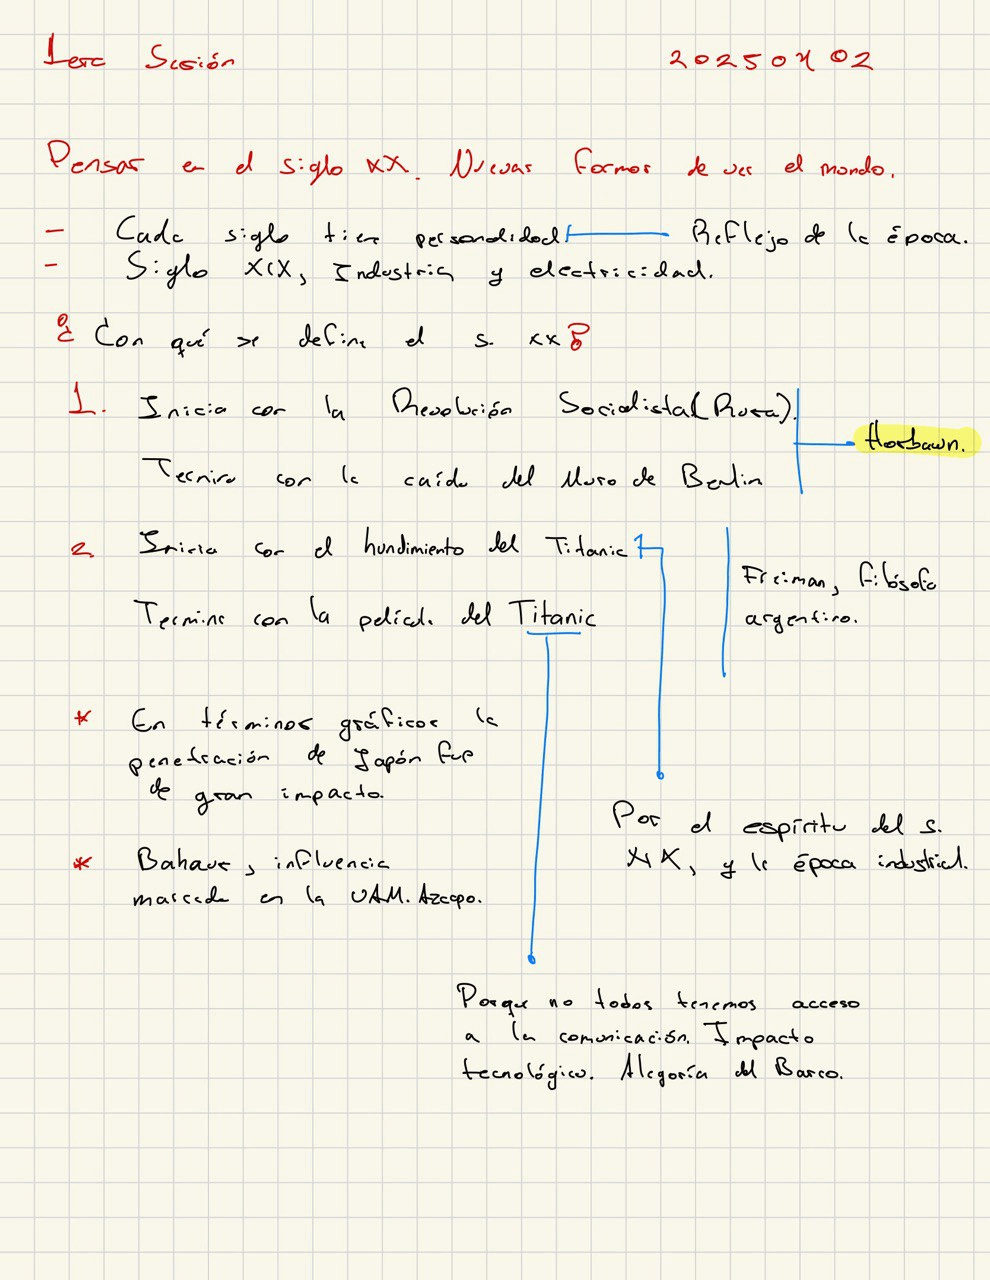 1era Sesión
20250402
Pensar en el siglo XX. Nuevas formas de ver el mundo.
- Cada siglo tiene personalidad
Reflejo de la época.
- Siglo XIX, Industria y electricidad.
¿Con qué se define el s. XX?
1. Inicia con la Revolución Socialista (Rusa).
Horbawn.
Termina con la caída del Muro de Berlin
2. Inicia con el hundimiento del Titanic
Freiman, filósofo
argentino.
Termina con la pelícl. del Titanic
* En términos gráficos la
penetración de Japón fue
de gran impacto.
Por el espíritu del s.
XIX, y la época industrial.
* Bahaus, influencia
marcada en la UAM. Azcapo.
Porque no todos tenemos acceso
a la comunicación. Impacto
tecnológico. Alegoría del Barco.